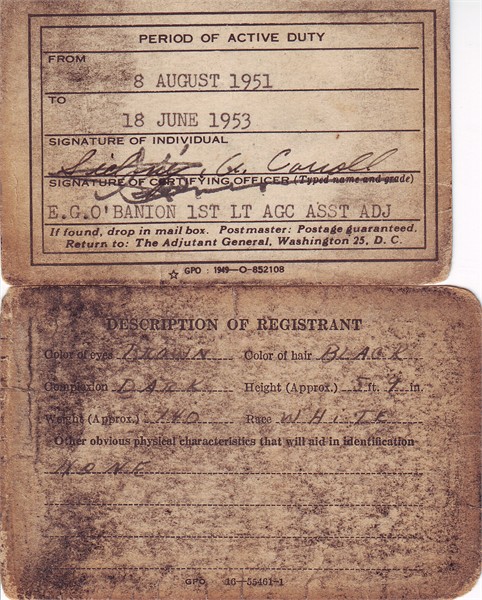 PERIOD OF ACTIVE DUTY
FROM
8 AUGUST 1951
TO
18 JUNE 1953
SIGNATURE OF INDIVIDUAL
Carroll
SIGNATURE OF CERTIFYING OFFICER (Typed name and grade)
E.G.O'BANION 1ST LT AGC ASST ADJ
If found, drop in mail box. Postmaster: Postage guaranteed.
Return to: The Adjutant General, Washington 25, D. C.
☆ GPO : 1949—O-852108
DESCRIPTION OF REGISTRANT
Color of eyes BROWN Color of hair BLACK
Complexion DARK Height (Approx.) 5 ft. 9 in.
Weight (Approx.) 140 Race WHITE
Other obvious physical characteristics that will aid in identification
NONE
GPO 16—55461-1